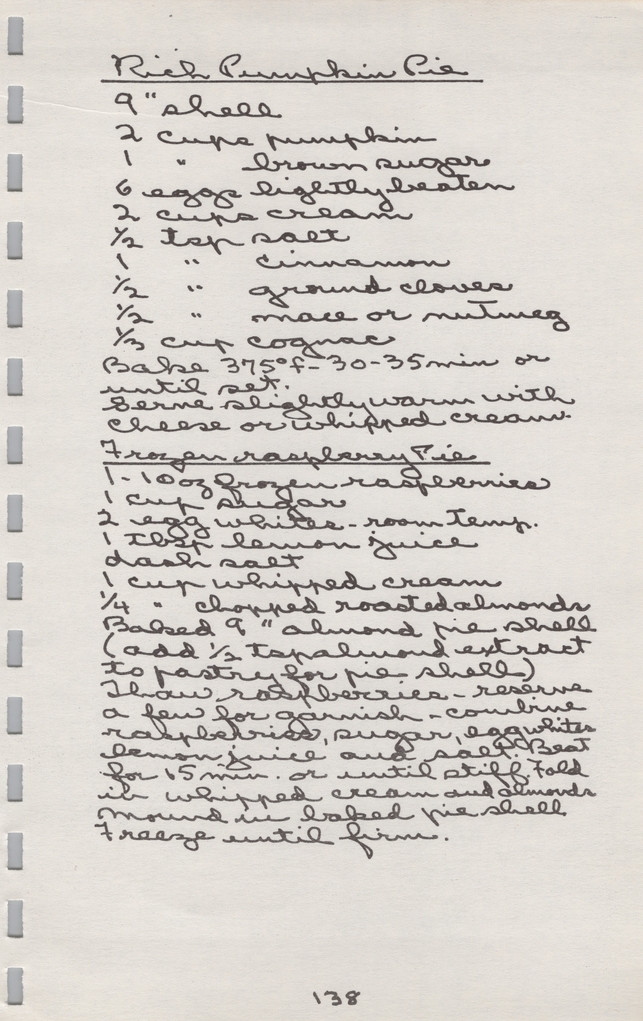 Rich Pumpkin Pie
9" shell
2 cups pumpkin
1 " brown sugar
6 eggs lightly beaten
2 cups cream
1/2 tsp salt
1 " cinnamon
1/2 " ground cloves
1/2 " mace or nutmeg
1/3 cup cognac
Bake 375°f - 30-35 min or
until set.
Serve slightly warm with
cheese or whipped cream.
Frozen raspberry Pie
1-10 oz frozen raspberries
1 cup sugar
2 egg whites - room temp.
1 tbsp lemon juice
dash salt
1 cup whipped cream
1/4 " chopped roasted almonds
Baked 9" almond pie shell
(add 1/2 tsp almond extract
to pastry for pie shell)
Thaw raspberries - reserve
a few for garnish - combine
raspberries, sugar, egg whites
lemon juice and salt. Beat
for 15 min. or until stiff. Fold
in whipped cream and almonds
Mound in baked pie shell
Freeze until firm.
138